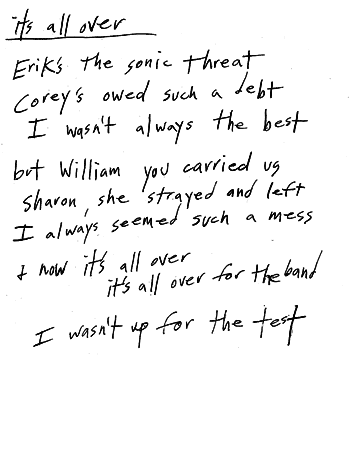 it's all over
Erik's the sonic threat
Corey's owed such a debt
I wasn't always the best
but William you carried us
Sharon, she strayed and left
I always seemed such a mess
& now it's all over
it's all over for the band
I wasn't up for the test